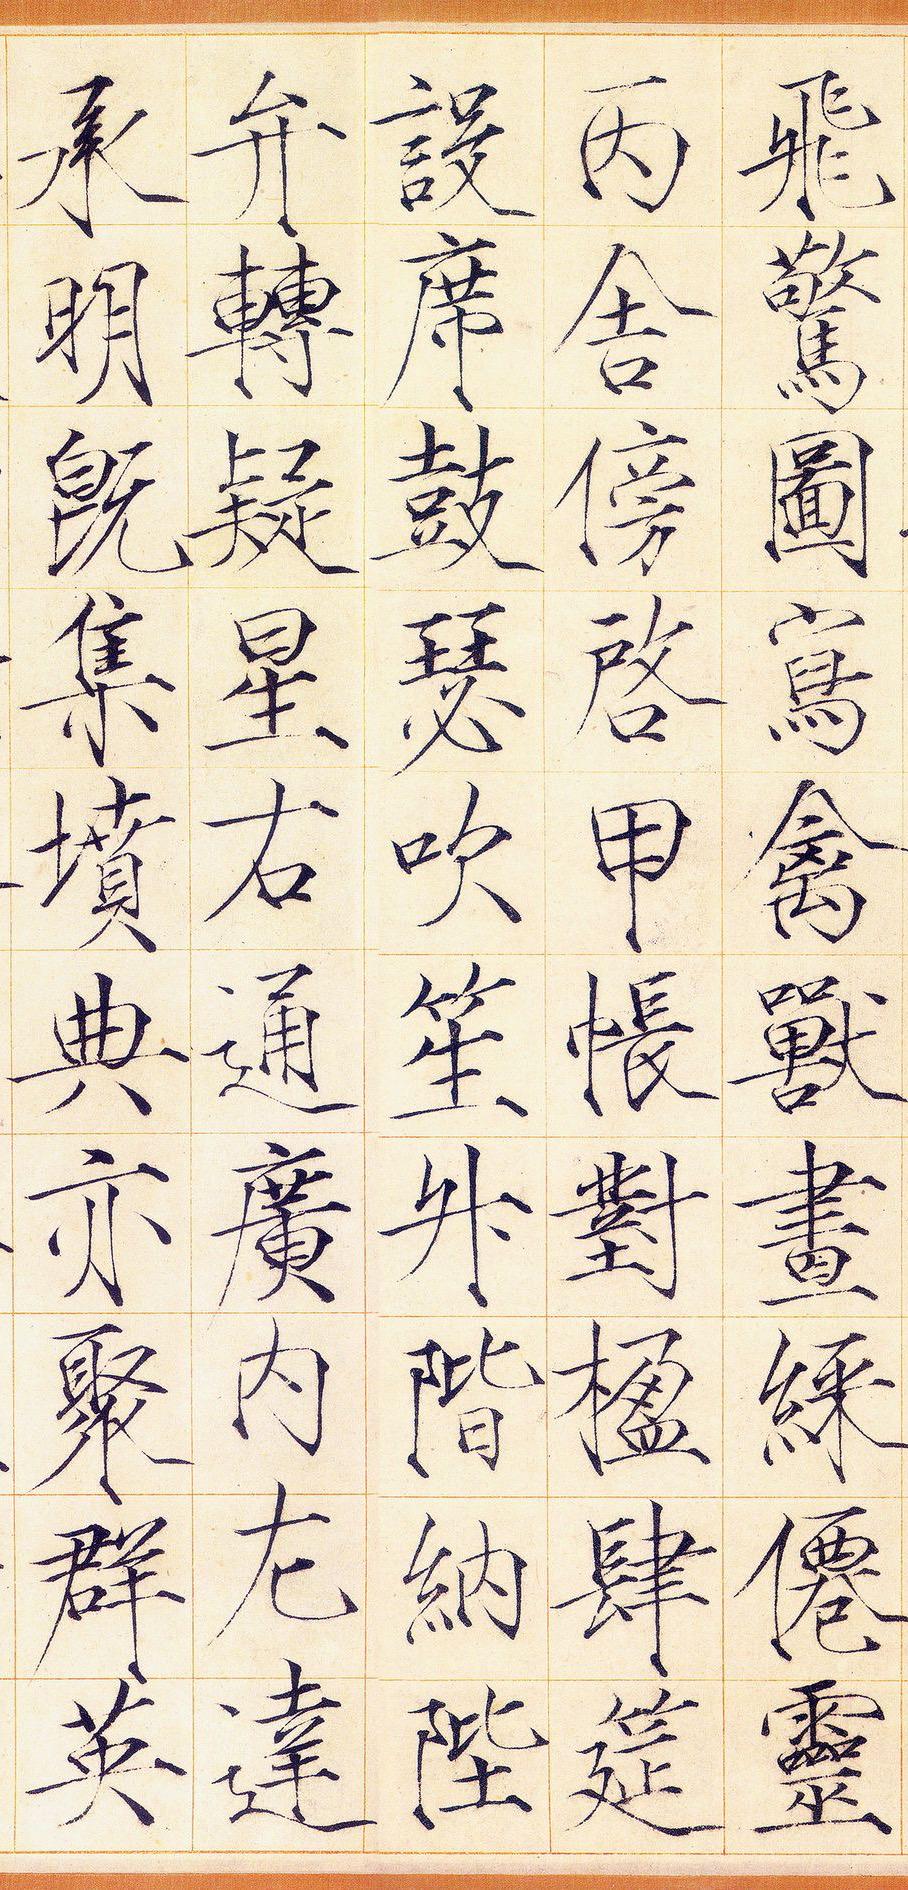 飛驚圖寫禽獸畫綵僊靈
丙舍傍啓甲帳對楹肆筵
設席鼓瑟吹笙升階納陛
弁轉疑星右通廣內左達
承明既集墳典亦聚群英